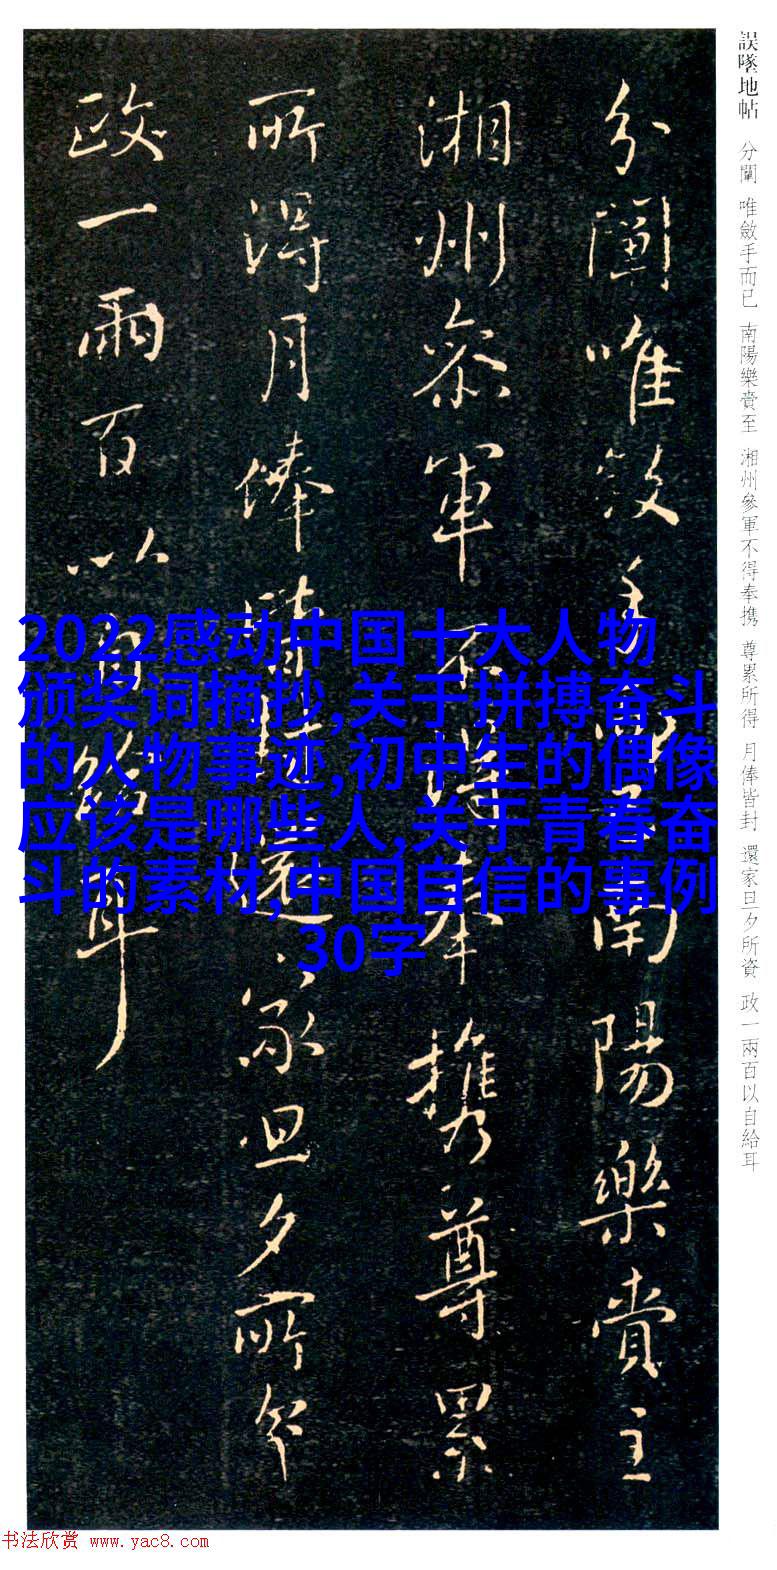 誤墜地帖 分闡 唯斂手而已 南陽樂賚至 湘州參軍不得奉攜 尊累所得 月俸皆封 還家旦夕所資 政一兩百以自給耳
分闡唯斂手而已南陽樂賚至
湘州參軍不得奉攜尊累
所得月俸皆封還家旦夕所資
政一兩百以自給耳
2022感动中国十大人物
颁奖词摘抄,关于拼搏奋斗
的人物事迹,初中生的偶像
应该是哪些人,关于青春奋
斗的素材,中国自信的事例
30字
书法欣赏 www.yac8.com